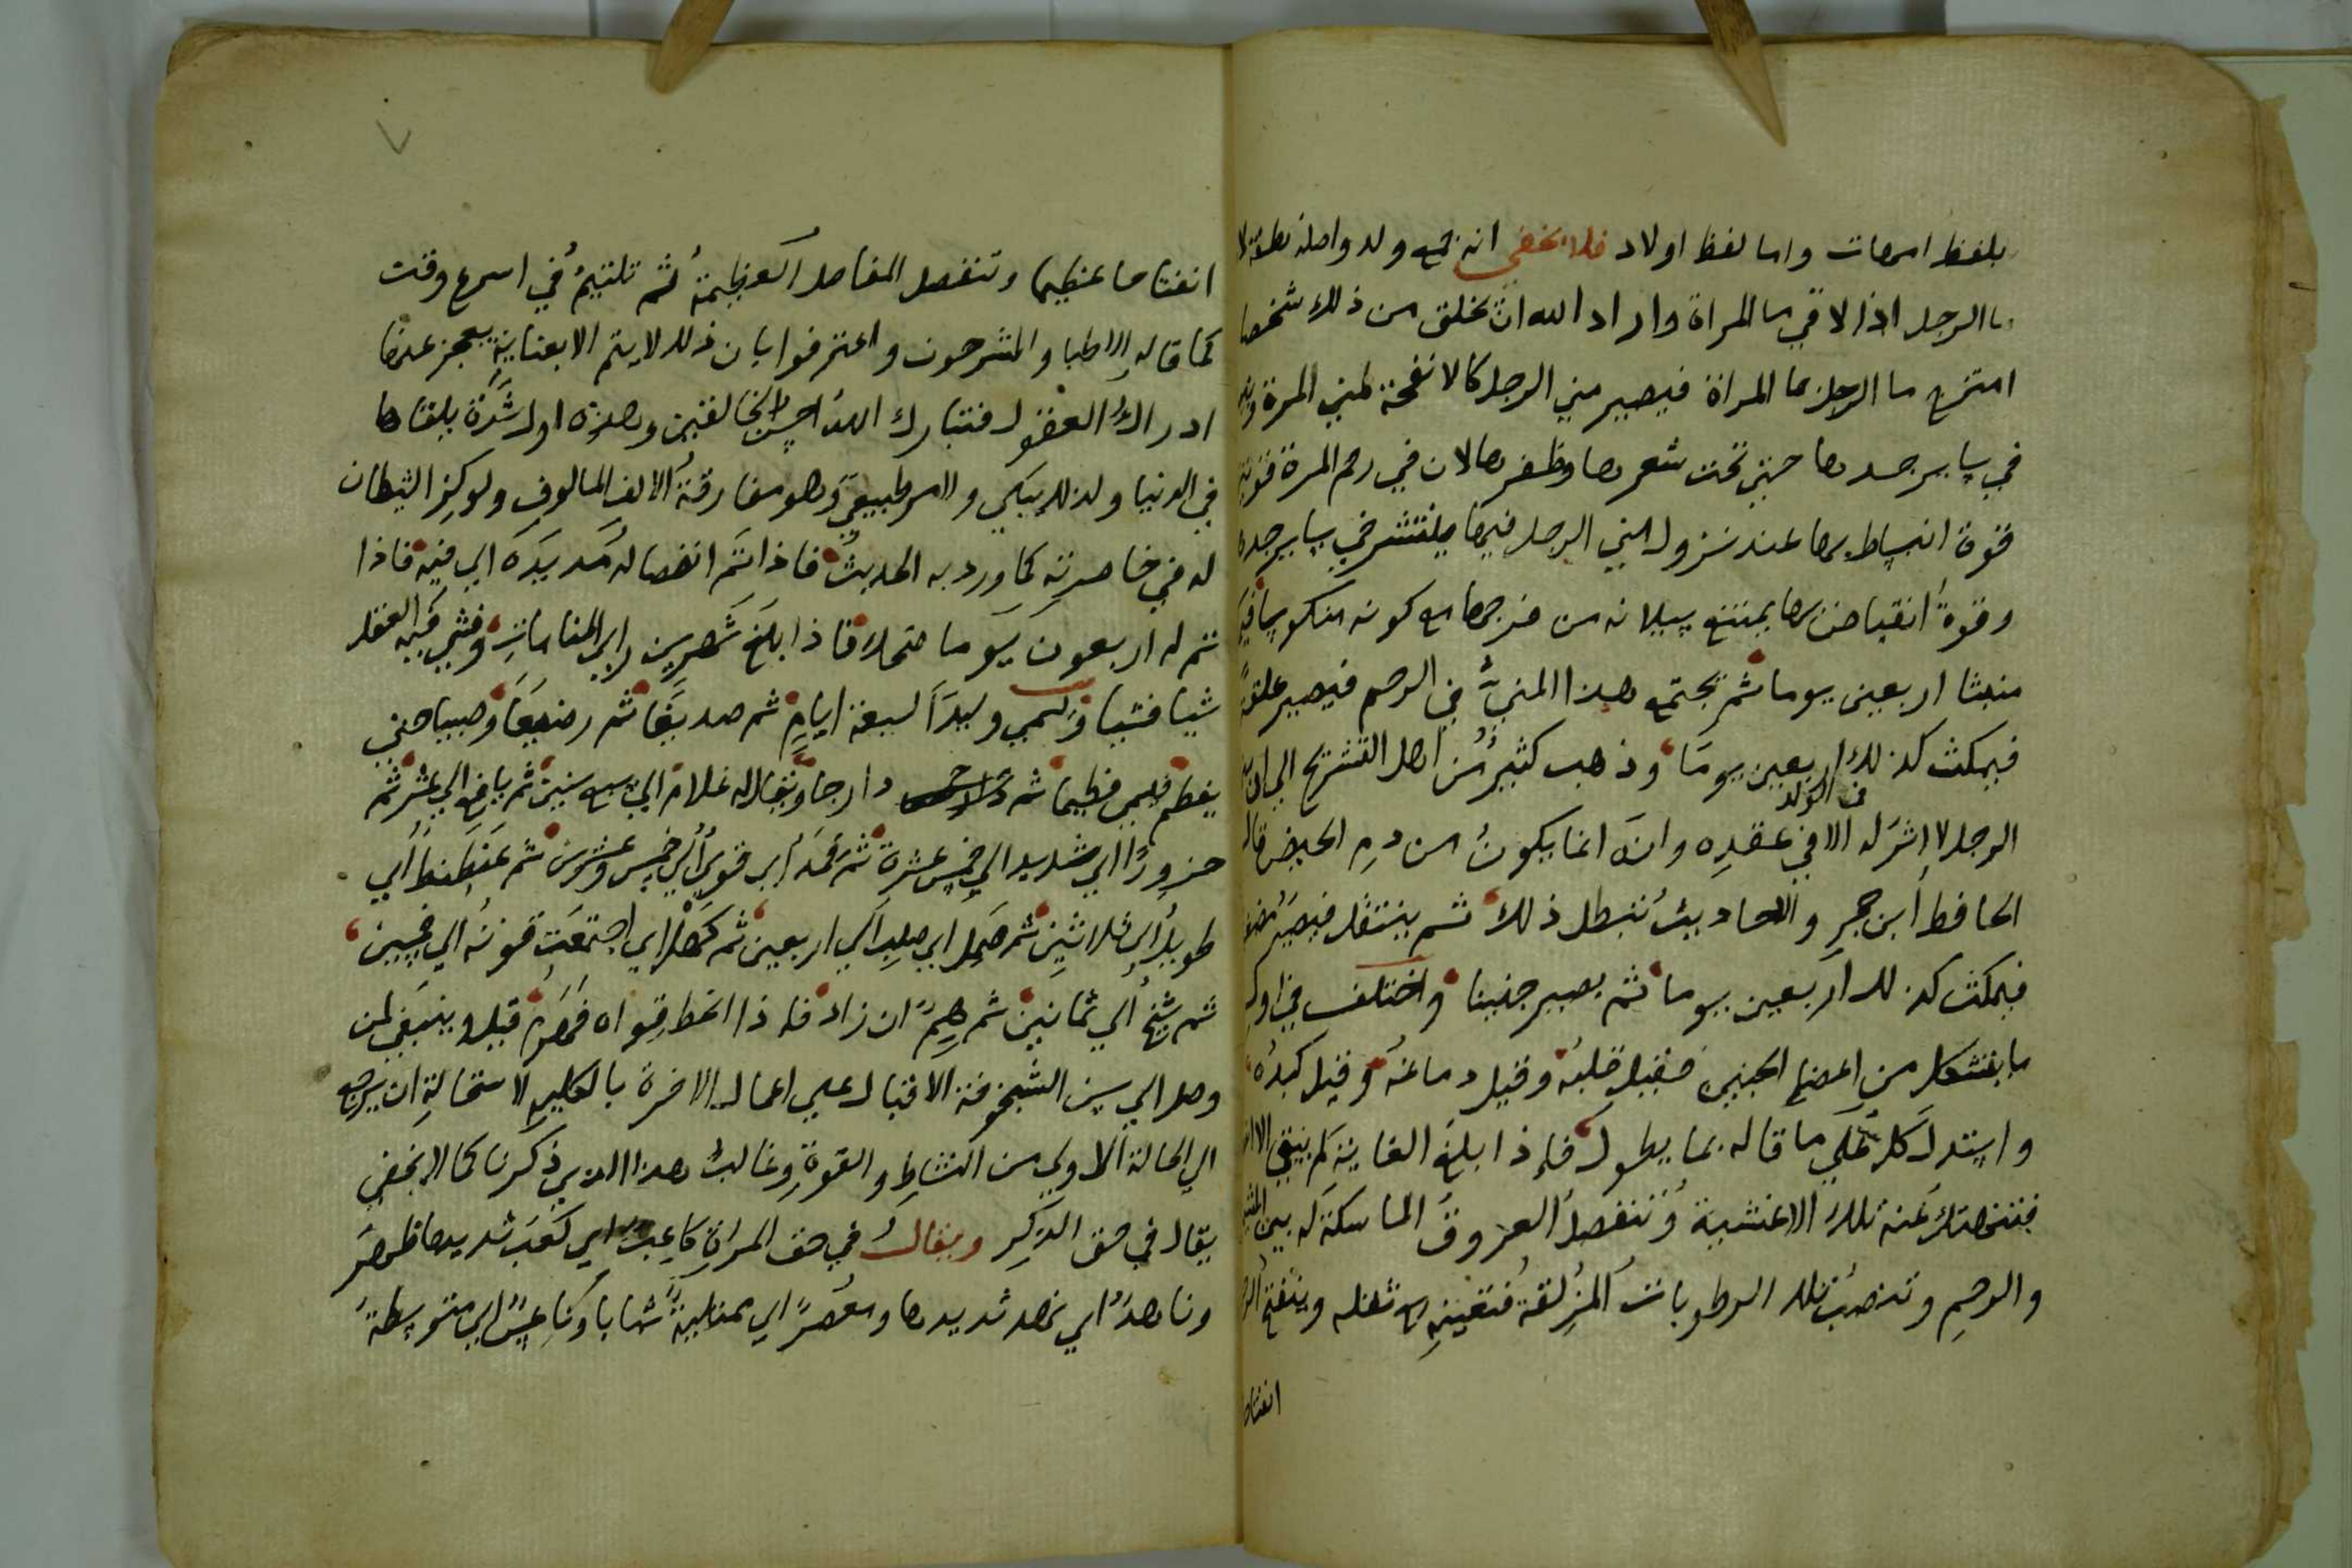 بلفظ امهات واما لفظ اولاد فلا يخفي انه جمع ولد واصله نطفة لا
ما الرجل اذا لاقي ما المراة واراد الله ان يخلق من ذلك شخصا
امتزج ما الرجل بما المراة فيصير مني الرجل كالانفحة لمني المرة
في ساير جسدها حتي تحت شعرها وظفرها لان في رحم المرة قوتين
قوة انبساط بها عند نزول المني الرجل فيها فينتشر في ساير جسده
وقوة انقباض بها يمتنع سيلانه من فرجها مع كونه منكوسا فيمكث
منبثا اربعين يوما ثم يجتمع هذا المني في الرحم فيصير علقة
فيمكث كذلك اربعين يوما وذهب كثير من اهل التشريح الي ان مني
في الولد
الرجل لا اثر له الا في عقده وانه انما يكون من دم الحيض قال
الحافظ ابن حجر والاحاديث تبطل ذلك ثم ينتقل فيصير مضغة
فيمكث كذلك اربعين يوما ثم يصير جنينا واختلف في اول
ما يتشكل من اعضا الجنين فقيل قلبه وقيل دماغه وقيل كبده
واستدل كل علي ما قاله بما يطول فاذا بلغ الغاية لم يبق الا ان
فتنهتك عنه تلك الاغشية وتنفصل العروق الماسكة له بين المشيمة
والرحم وتنصب تلك الرطوبات المزلقة فتعينه مع ثقله وينفتح الرحم
انفتاحا
انفتاحا عظيما وتنفصل المفاصل العظيمة ثم تلتيم في اسرع وقت
كما قاله الاطبا والمشرحون واعترفوا بان ذلك لا يتم الا بعناية يعجز عنها
ادراك العقول فتبارك الله احسن الخالقين وهذه اول شدة يلقاها
في الدنيا ولذلك يبكي ولامر طبيعي وهو مفارقة الالف المالوف ولوكز الشيطان
له في خاصرته كما ورد به الحديث فاذا تم انفصاله مد يده الي فيه فاذا
تم له اربعون يوما ضحك فاذا بلغ شهرين راي المنامات وفشي فيه العقل
شيا فشيا ويسمي وليدا لسبعة ايام ثم صديغا ثم رضيعا وصبيا حتي
يفطم فيسمي فطيما ثم دارجا ويقال له غلام الي سبع سنين ثم يافع الي عشر ثم
حزورا اي شديد الي خمس عشرة ثم قمد اي قوي الي خمس وعشرين ثم عنطنط اي
طويل الي ثلاثين ثم صمل اي صلبا الي اربعين ثم كهل اي اجتمعت قوته الي خمسين
ثم شيخ الي ثمانين ثم هم ان زاد فاذا انحط قواه فهرم قيل وينبغي لمن
وصل الي سن الشيخوخة الاقبال علي اعمال الاخرة بالكلية لاستحالة ان يرجع
الي الحالة الاولي من النشاط والقوة وغالب هذا الذي ذكرنا كما لا يخفي
يقال في حق الذكر ويقال في حق المراة كاعب اي كعب ثديها ظهر
وناهد اي نهد ثديها ومعصرا اي ممتلية شبابا وعانس اي متوسطة